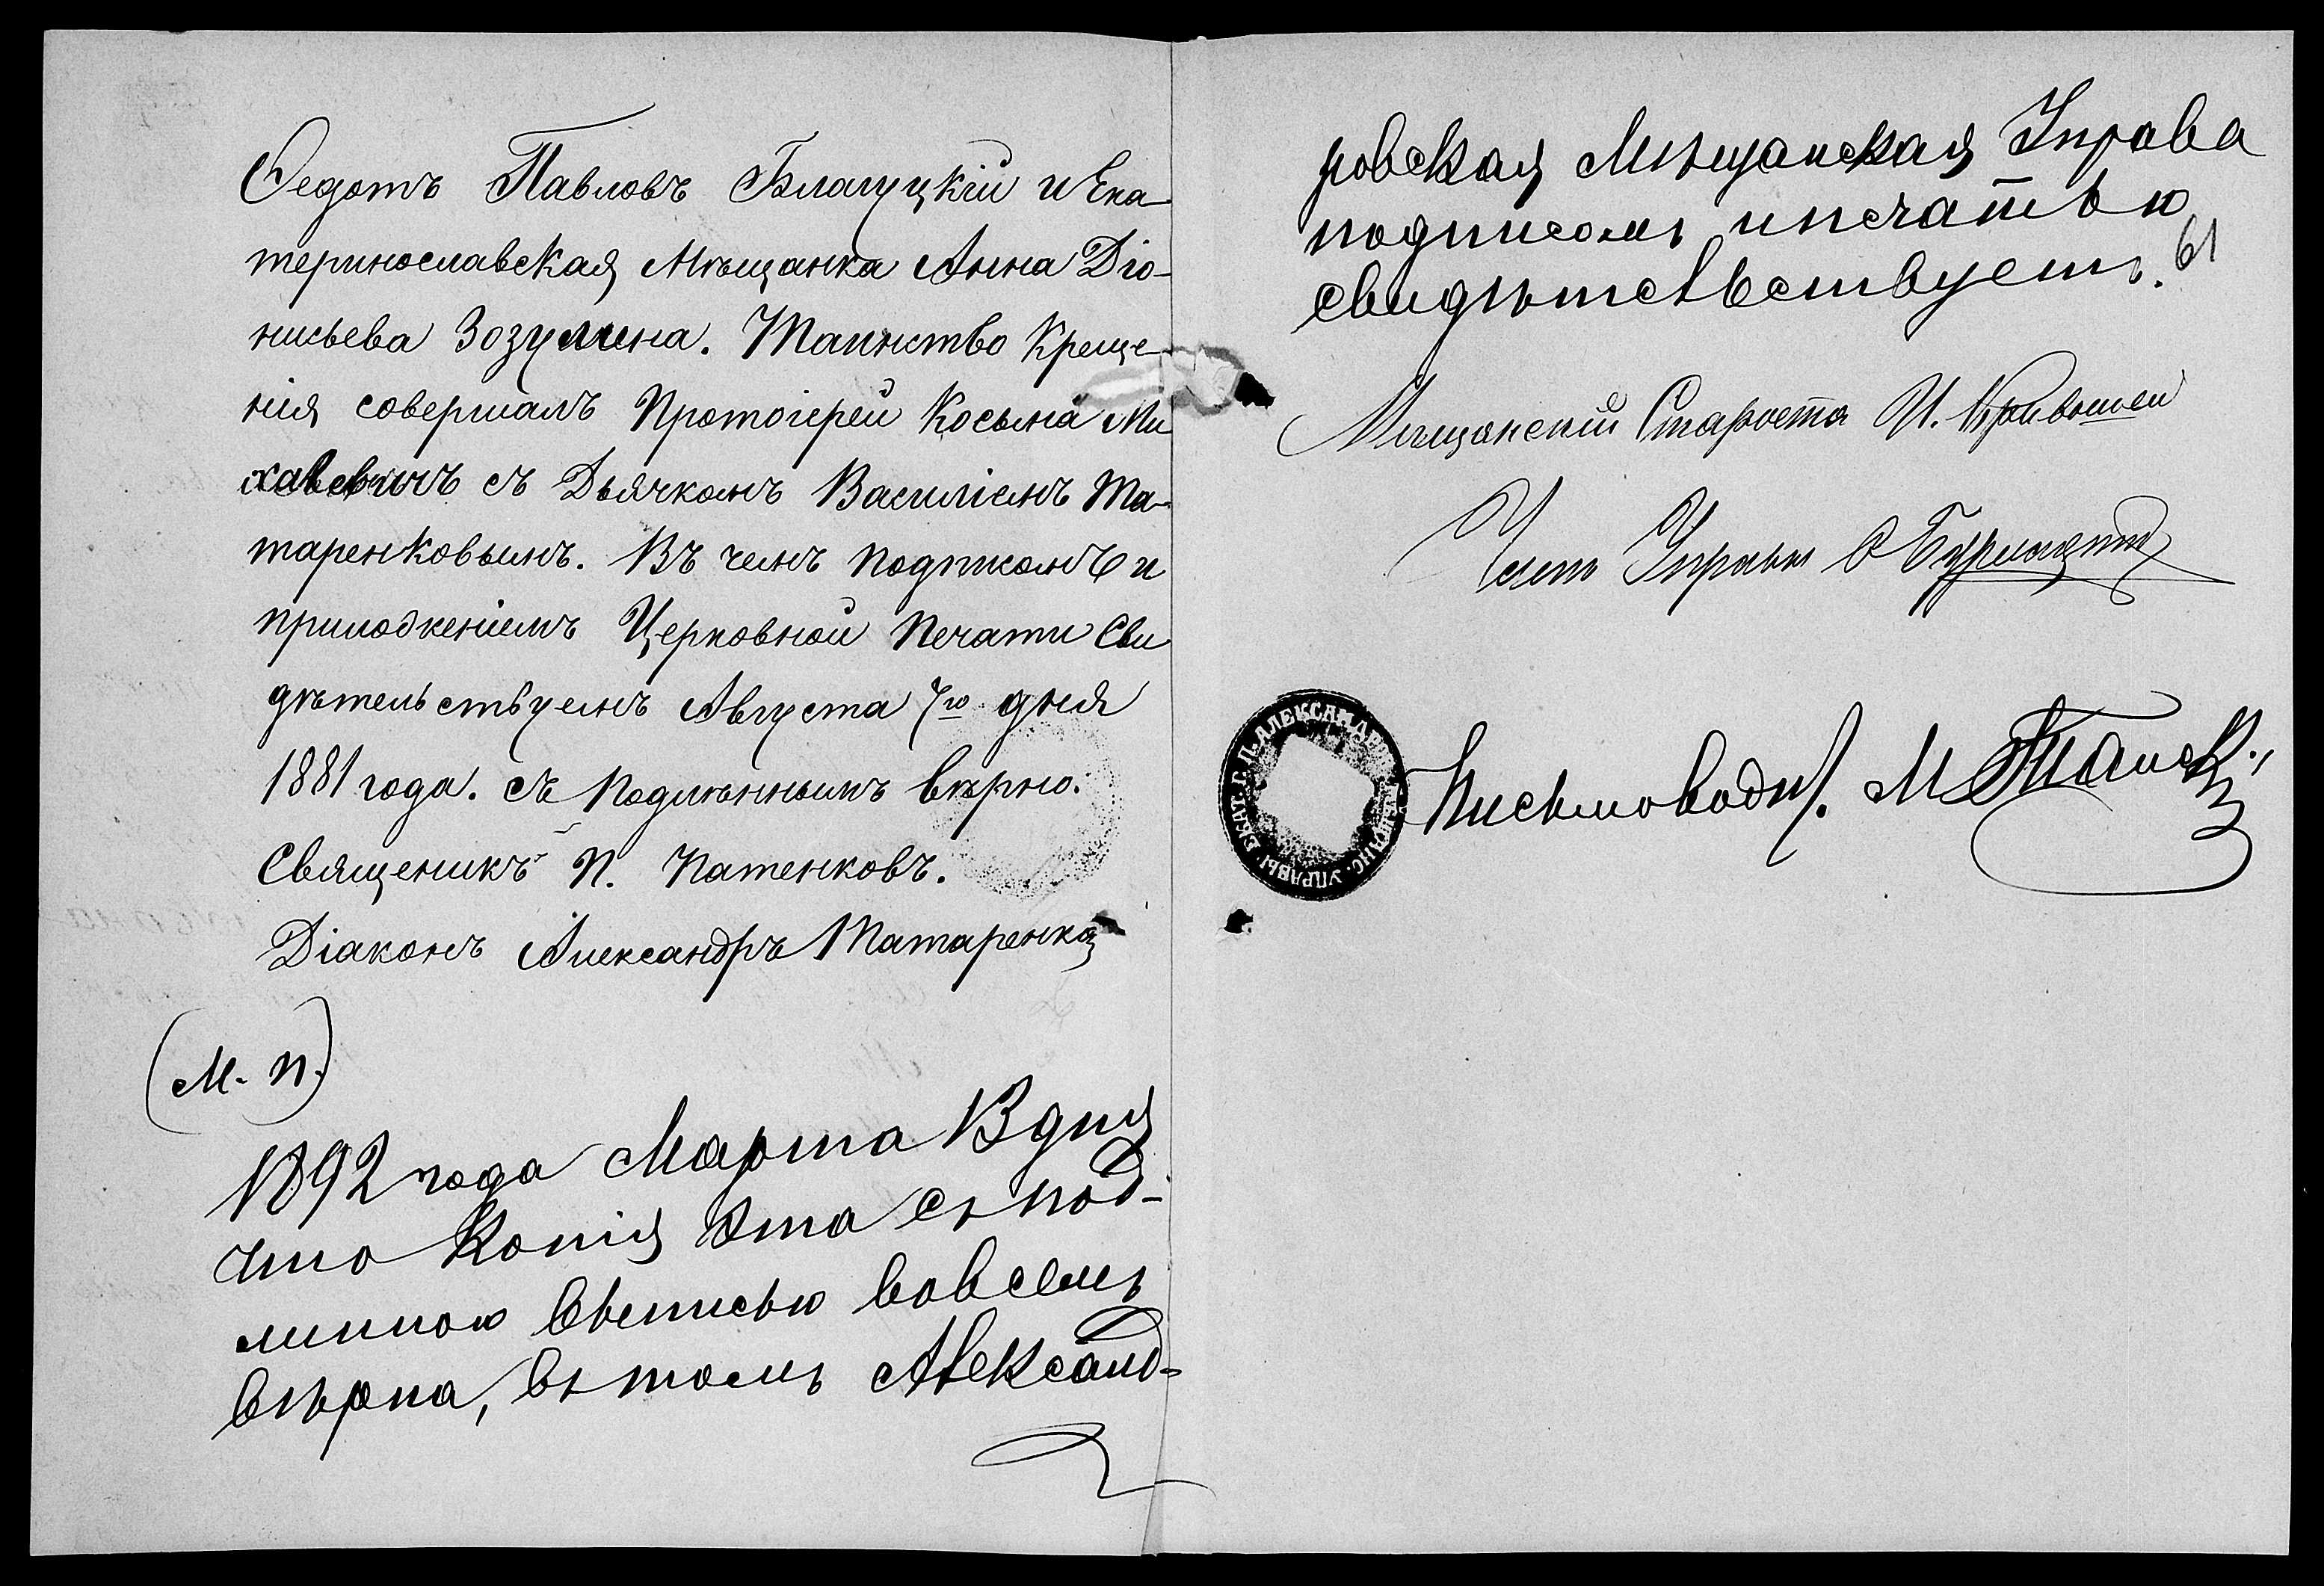 Ѳедотъ Павловъ Благуцкій и Ека-
теринославская Мѣщанка Анна Діо-
нисьева Зозулина. Таинство Креще-
нія совершалъ Протоіерей Косьма Ми
съ Дьячкомъ Василіемъ Та-
таренковымъ. Въ чемъ подписомъ и
приложеніемъ Церковной Печати Сви
дѣтельствуемъ Августа 7го дня
1881 года. съ Подлѣннымъ вѣрно.
Священикъ П. Патенковъ.
Діаконъ Александръ Татаренко
(М. П.)
1892 года Марта 13 дня
что Копія эта съ под-
линною вовсемъ
вѣрна, въ томъ Александ-
ровская Мѣщанская Управа
подписомъ и печатью
свидѣтельствуетъ.
61
Мѣщанскій Староста И. Кривошей
Членъ Управы
Письмоводи. М